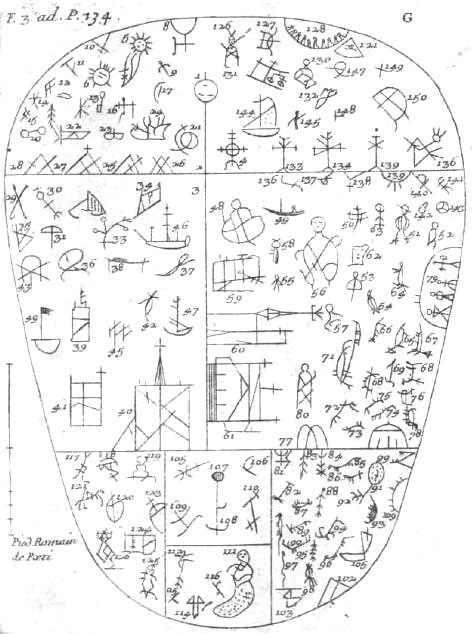 F. 3 ad. P. 134. G
10 6 8 126 127 128 121
11 5 9 131 130 147 149
12 1 132
14 13 16 17 150
15 24 144 145 148
20 22 23 21
4 133 134 139 136
28 27 25 26 2
136 137 138 139 140 141
29 30 34 3 48 49 50 63 142
35 31 33 46 58 51 52
43 36 38 37 59 55 56 62 53 64 79
49 39 45 42 47 57 54
60 66 65 67
71 69 68
41 40 61 80 72 75 76
73 74 78
77
117 118 119 105 107 106 81 83 84 85 99
121 120 109 108 110 82 88 92 91
87 93
124 97 105
125 112 111 98 102
116 103
Pied Romain
de Pæti